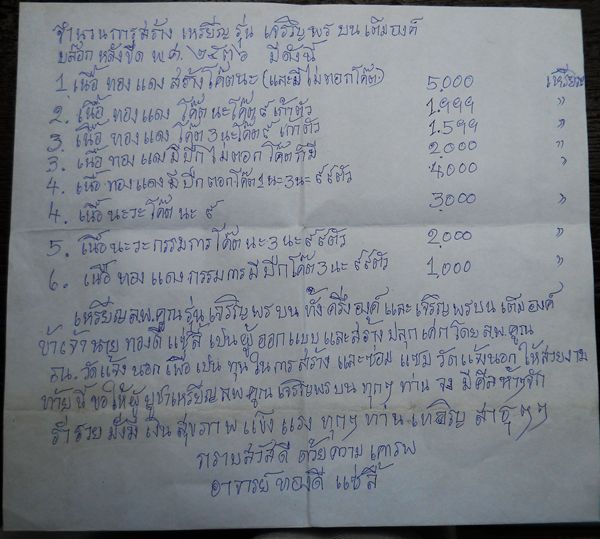 จำนวนการสร้าง เหรียญ รุ่น เจริญพร บน เต็มองค์
บล๊อก หลังขีด พ.ศ. ๒๕๓๖ มีดังนี้
1 เนื้อ ทองแดง สร้างโค๊ตนะ (และมีไม่ตอกโค๊ต) 5,000 เหรียญ
2. เนื้อ ทองแดง โค๊ตนะโค๊ต ๙ เก้าตัว 1.999 "
3. เนื้อ ทองแดง โค๊ต 3 นะโค๊ต ๙ เก้าตัว 1.599 "
3. เนื้อ ทองแดง มีปีก ไม่ตอก โค๊ตก็มี 2,000 "
4. เนื้อ ทองแดง มีปีก ตอกโค๊ต 1 นะ 3 นะ ๙ ๙ตัว 4,000 "
4. เนื้อ นะวะ โค๊ต นะ ๙ 3,000 "
5. เนื้อ นะวะ กรรมการ โค๊ต นะ 3 นะ ๙ ๙ตัว 2,000 "
6. เนื้อ ทองแดง กรรมการ มีปีกโค๊ต 3 นะ ๙ ๙ตัว 1,000 "
เหรียญ ลพ.คูณ รุ่น เจริญพร บน ทั้ง ครึ่งองค์ และ เจริญพรบน เต็มองค์
ข้าเจ้านาย ทองดี แซ่ลี้ เป็นผู้ ออกแบบ และสร้าง ปลุกเศก โดย ลพ.คูณ
ณ. วัดแจ้งนอก เพื่อ เป็น ทุน ในการ สร้าง และซ่อม แซม วัดแจ้งนอก ให้สวยงาม
ท้ายนี้ ขอให้ผู้ บูชาเหรียญ ลพ.คูณ เจริญพร บน ทุกๆ ท่าน จง มีศีลห้าๆ
ร่ำรวย มั่งมี เงิน สุขภาพ แข็ง แรง ทุกๆ ท่าน เทอิญ สาธุ ๆๆ
กราบสวัสดี ด้วยความ เคารพ
อาจารย์ ทองดี แซ่ลี้